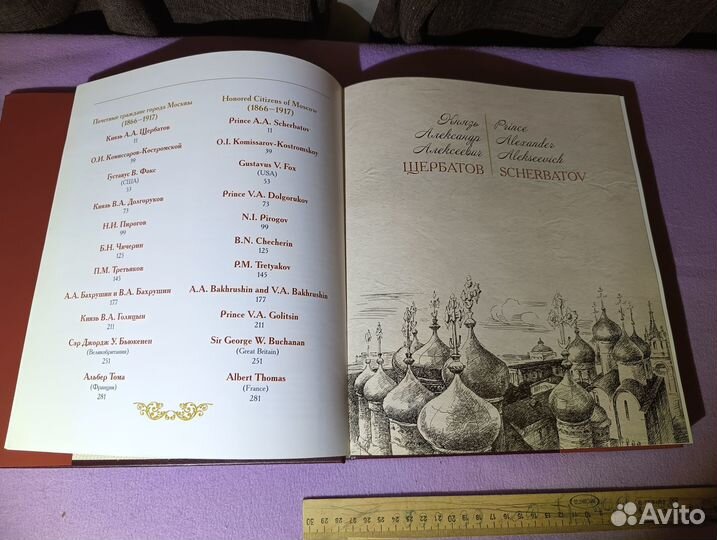 Почетные граждане города Москвы
(1866–1917)
Князь А.А. Щербатов
11
О.И. Комиссаров-Костромской
39
Густавус В. Факс
(США)
53
Князь В.А. Долгоруков
73
Н.И. Пирогов
99
Б.Н. Чичерин
125
П.М. Третьяков
145
А.А. Бахрушин и В.А. Бахрушин
177
Князь В.А. Голицын
211
Сэр Джордж У. Бьюкенен
(Великобритания)
251
Альбер Тома
(Франция)
281
Honored Citizens of Moscow
(1866–1917)
Prince A.A. Scherbatov
11
O.I. Komissarov-Kostromskoy
39
Gustavus V. Fox
(USA)
53
Prince V.A. Dolgorukov
73
N.I. Pirogov
99
B.N. Checherin
125
P.M. Tretyakov
145
A.A. Bakhrushin and V.A. Bakhrushin
177
Prince V.A. Golitsin
211
Sir George W. Buchanan
(Great Britain)
251
Albert Thomas
(France)
281
Князь
Александр
Алексеевич
ЩЕРБАТОВ
Prince
Alexander
Alekseevich
SCHERBATOV
30 29 28 27 26 25 24 23 22 21 20 19 18 17 16 15 14 13 12 11
Avito